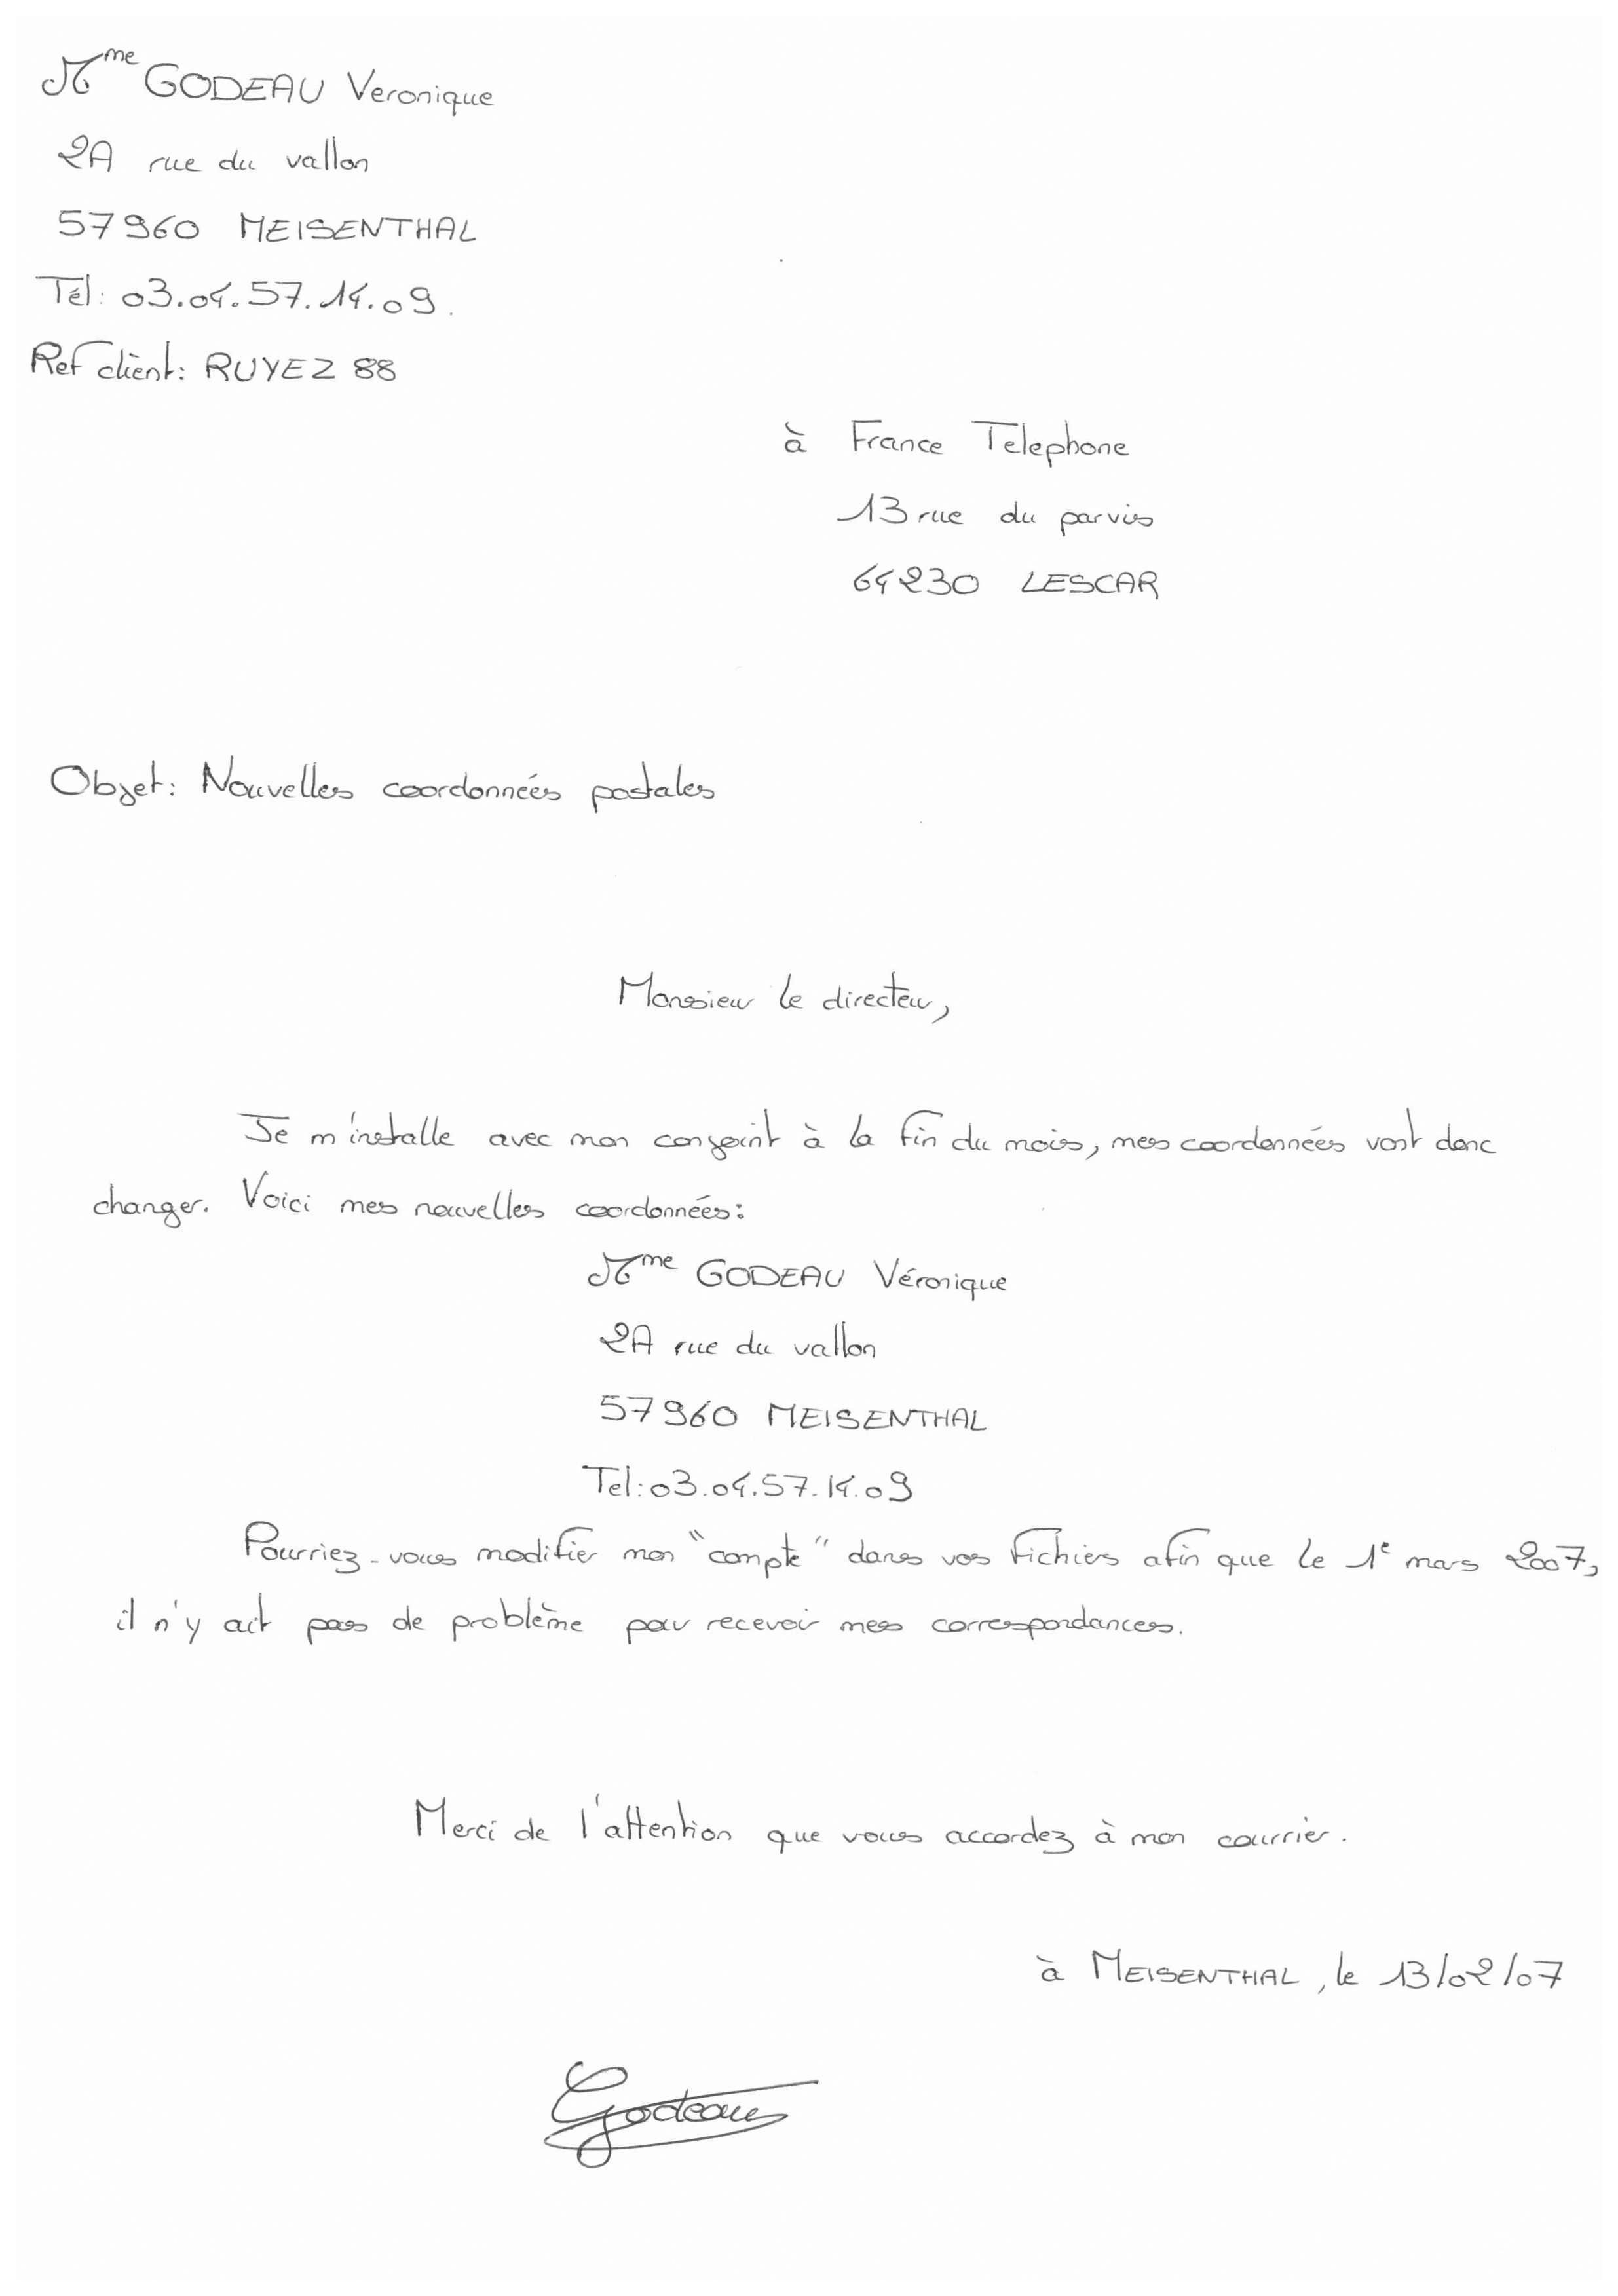 Mme GODEAU Veronique
2A rue du vallon
57960 MEISENTHAL
Tél: 03.04.57.14.09.
Ref client: RUYEZ 88
à France Telephone
13 rue du parvis
64230 LESCAR
Objet: Nouvelles coordonnées postales
Monsieur le directeur,
Je m'installe avec mon conjoint à la fin du mois, mes coordonnées vont donc
changer. Voici mes nouvelles coordonnées:
Mme GODEAU Véronique
2A rue du vallon
57960 MEISENTHAL
Tel: 03.04.57.14.09
Pourriez-vous modifier mon "compte" dans vos fichiers afin que le 1e mars 2007,
il n'y ait pas de problème pour recevoir mes correspondances.
Merci de l'attention que vous accordez à mon courrier.
à MEISENTHAL, le 13/02/07
Godeau